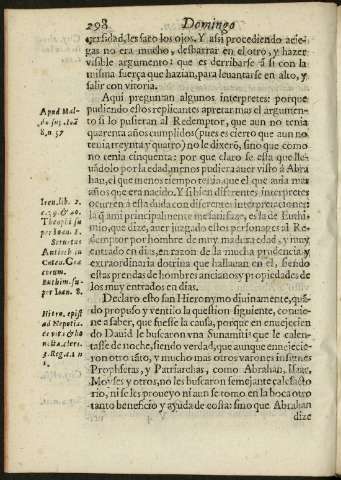 298 Domingo
uersidad, les saco los ojos. Y assi procediendo a cie-
gas no era mucho, desbarrar en el otro, y hazer
visible argumento: que es derribarse â si con la
misma fuerça que hazian, para leuantarse en alto, y
salir con vitoria.
Aqui preguntan algunos interpretes: porque
pudiendo estos replicantes apretar mas el argumen-
to si lo pusieran al Redemptor, que aun no tenia
quarenta años cumplidos (pues es cierto que aun no
tenia treynta y quatro) no le dixerõ, sino que como
no tenia cinquenta: por que claro se esta que lle-
uãdolo por la edad, menos pudiera auer visto â Abra
han, el que menos tiempo tenia, que el que auia mas
años que era nacido. Y si bien diferentes interpretes
ocurren â esta duda con diferentes interpretaciones:
la q̃ ami principalmente me satisfaze, es la de Euthi-
mio, que dize, auer juzgado estos personages al Re-
demptor por hombre de muy madura edad, y muy
entrado en dias, en razon de la mucha prudencia, y
extraordinaria dotrina que hallauan en el, siendo
estas prendas de hombres ancianos y propiedades de
los muy entrados en dias.
Declaro esto san Hieronymo diuinamente, quã-
do propuso y ventilo la question siguiente, conuie-
ne a saber, que fuesse la causa, porque en enuejecien
do Dauid le buscaron vna Sunamitis que le calen-
tasse de noche, siendo verdad, que aunque enuejecie-
ron otro tãto, y mucho mas otros varones insignes
Prophetas, y Patriarchas, como Abrahan, Isaac,
Moyses y otros, no les buscaron semejante calefacto
rio, ni se les proueyo ni aun se tomo en la boca otro
tanto beneficio y ayuda de costa: sino que Abrahan
dize
Apud Mal-
do. sup. Ioã
8, n 57
Iren. lib. 2.
c. 39. & 40.
Theophi su
per Ioan 8.
Seuerus
Antioch in
Catena Græ
corum.
Euthim. su-
per Ioan. 8.
Hiero. epist
ad Nepotia.
de vit. & ho
nesta. cleri.
3. Reg. c. 1 n
1.